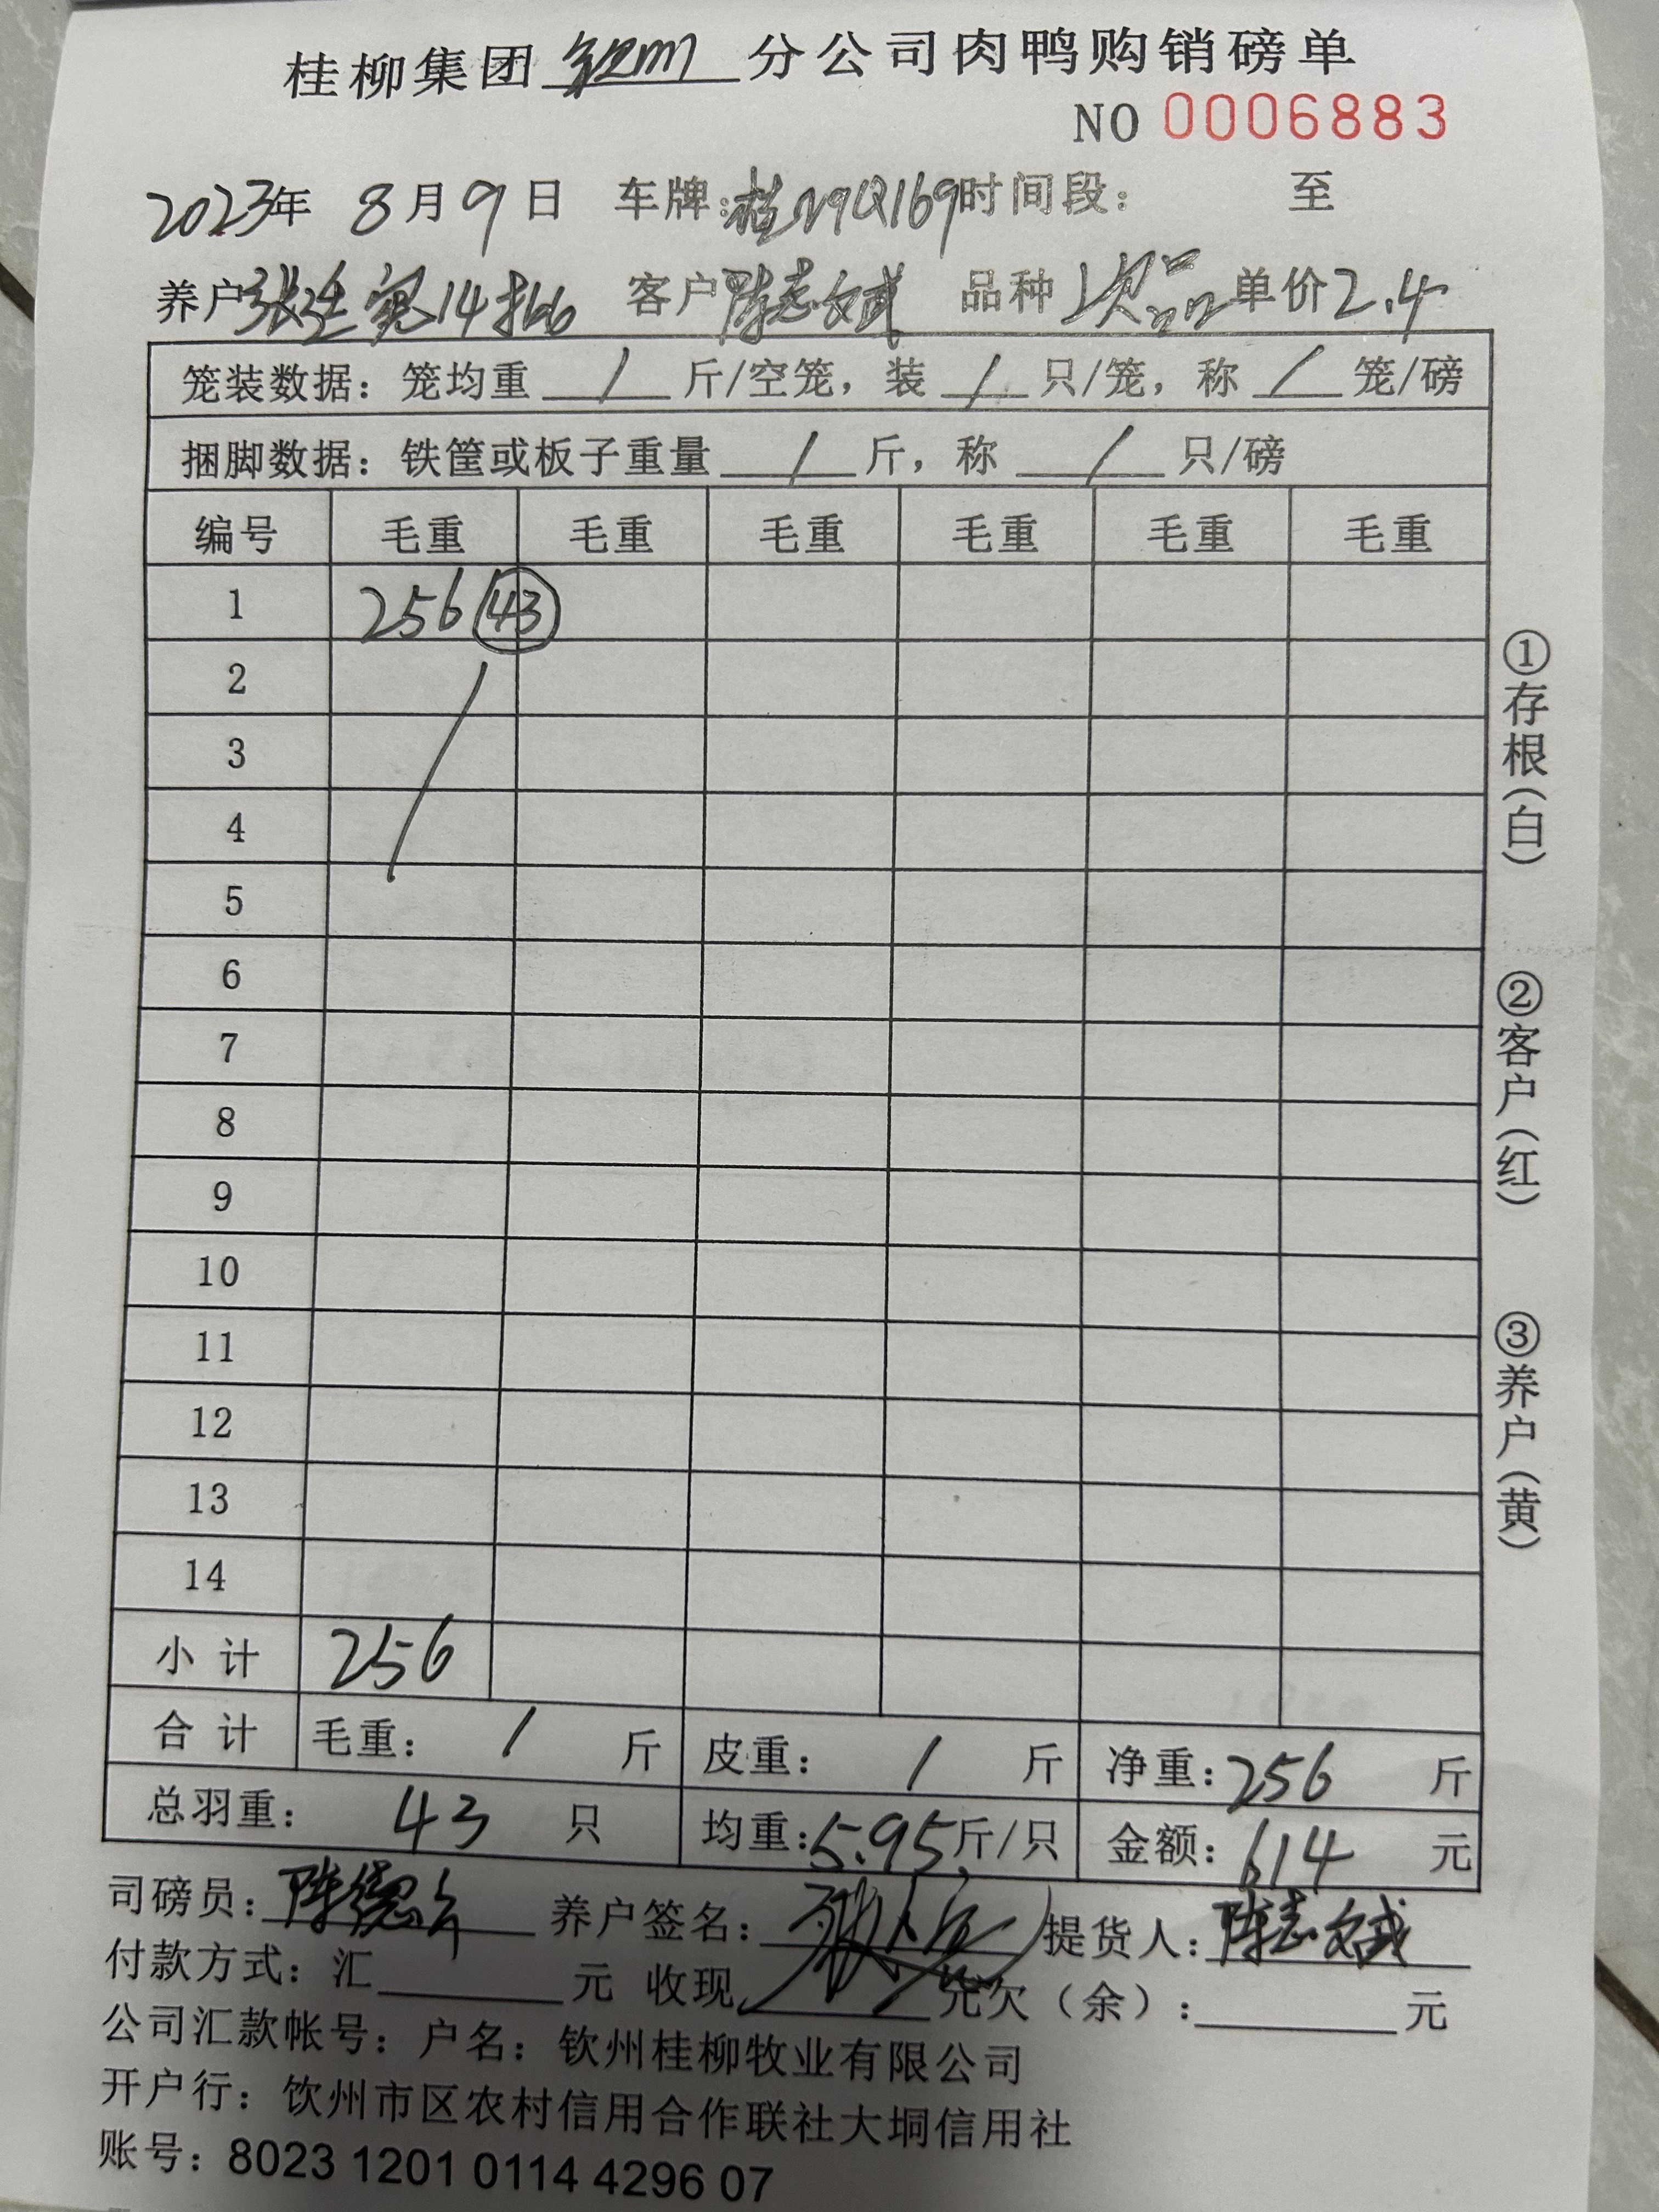 桂柳集团 钦州 分公司肉鸭购销磅单
NO 0006883
2023年 8月9日 车牌:桂N9Q169 时间段: 至
养户 张 宽14批 客户 陈志斌 品种 次品 单价2.4
笼装数据: 笼均重 / 斤/空笼, 装 / 只/笼, 称 / 笼/磅
捆脚数据: 铁筐或板子重量 / 斤, 称 / 只/磅
编号 毛重 毛重 毛重 毛重 毛重 毛重
1 256 43
2
3
4
5
6
7
8
9
10
11
12
13
14
小计 256
合计 毛重: / 斤 皮重: / 斤 净重: 256 斤
总羽重: 43 只 均重: 5.95 斤/只 金额: 614 元
司磅员: 陈德 养户签名: 张 提货人: 陈志斌
付款方式: 汇 元 收现 元欠(余): 元
公司汇款帐号: 户名: 钦州桂柳牧业有限公司
开户行: 饮州市区农村信用合作联社大垌信用社
账号: 8023 1201 0114 4296 07
①存根(白)
②客户(红)
③养户(黄)